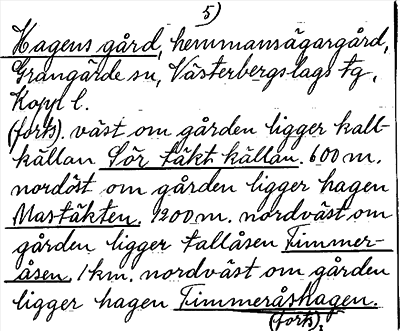 5)
Hagens gård, hemmansägargård,
Grangärde sn, Västerbergslags tg,
Kopl l.
(forts). väst om gården ligger kall-
källan Sör täkt källan. 600 m.
nordöst om gården ligger hagen
Mastäkten. 1200 m. nordväst om
gården ligger tallåsen Timmer-
åsen. 1 km. nordväst om gården
ligger hagen Timmeråshagen.
(forts).